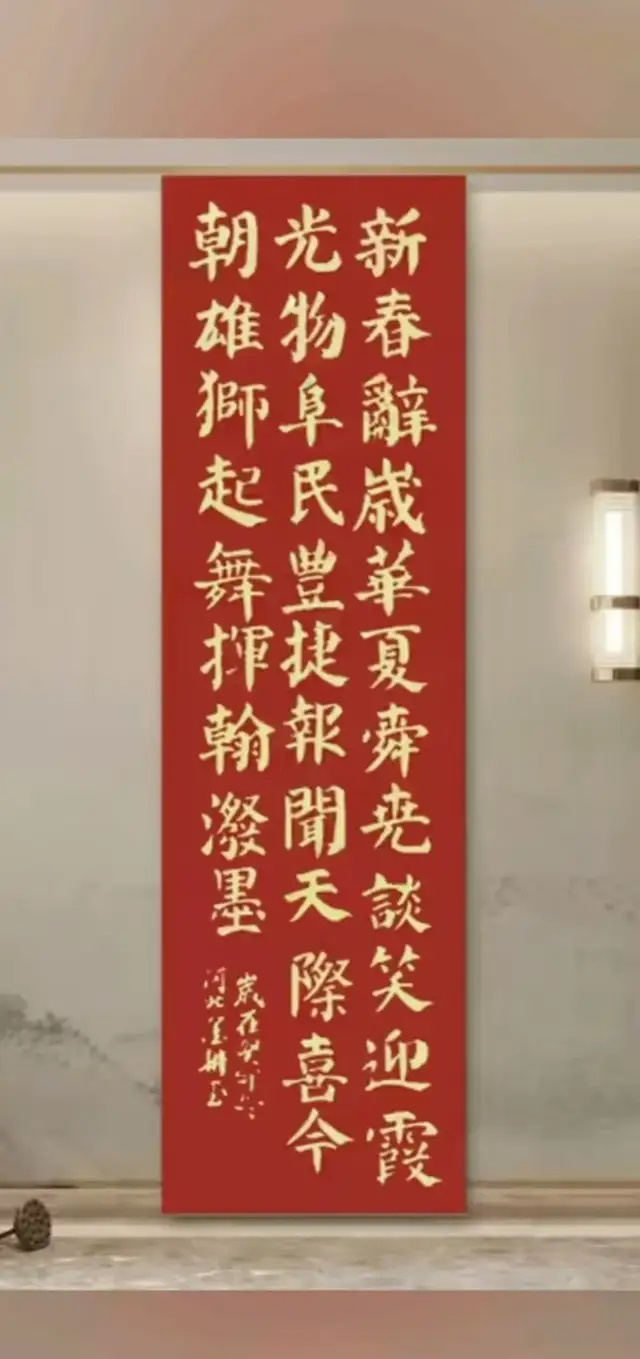 新春辭歲華夏舜尭談笑迎霞
光物阜民豐捷報聞天際喜今
朝雄獅起舞揮翰潑墨
歲在癸卯冬
河北